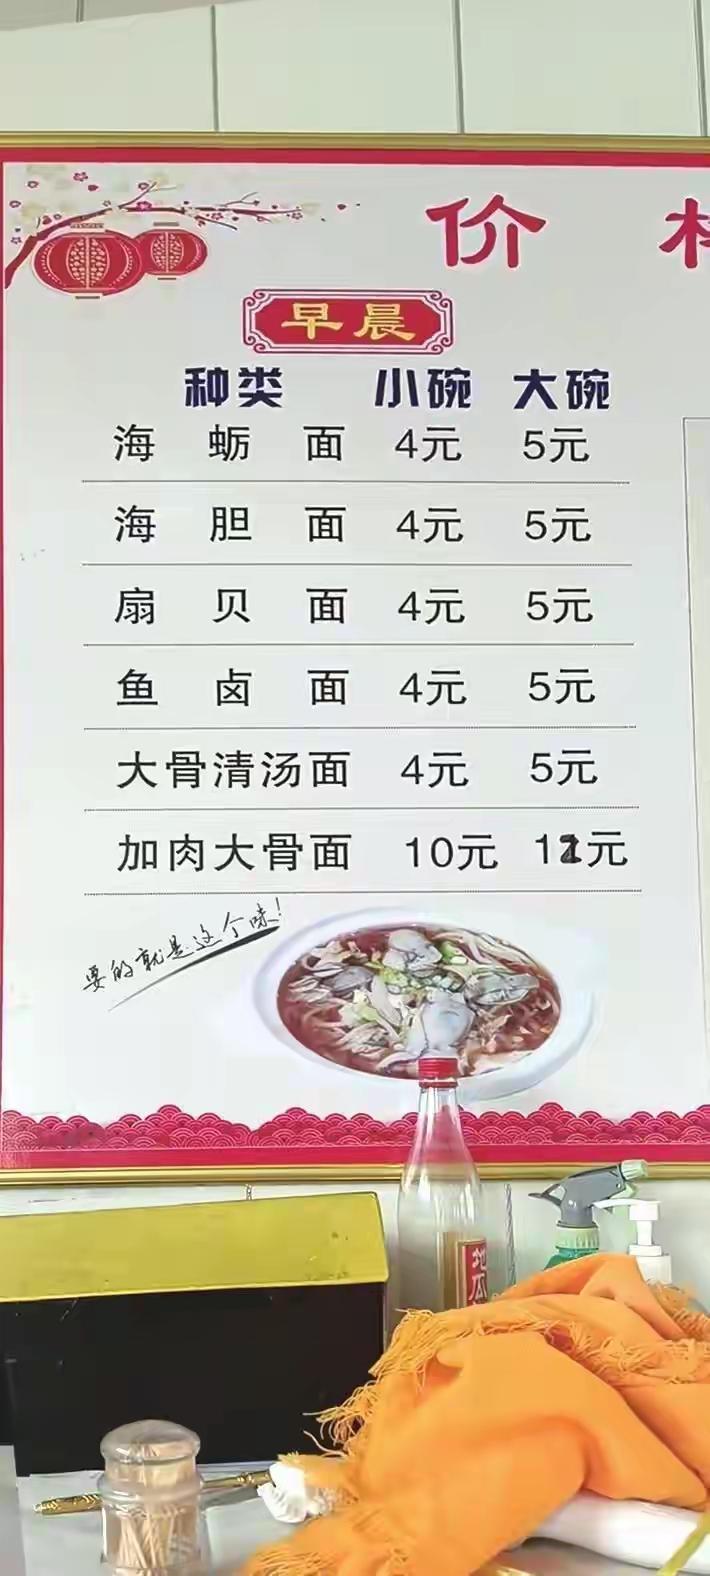 价
早晨
种类 小碗 大碗
海蛎面 4元 5元
海胆面 4元 5元
扇贝面 4元 5元
鱼卤面 4元 5元
大骨清汤面 4元 5元
加肉大骨面 10元 12元
要的就是这个味!
地瓜